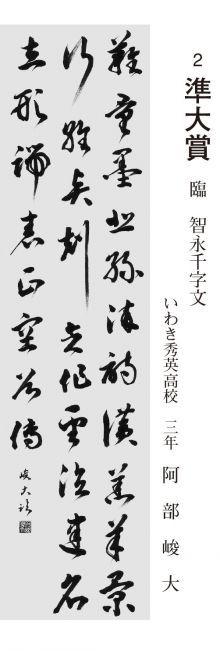 2 準大賞 臨 智永千字文
いわき秀英高校 三年 阿部峻大
難量墨悲絲染詩讚羔羊景
行維賢剋念作聖德建名
立形端表正空谷傳
峻大臨